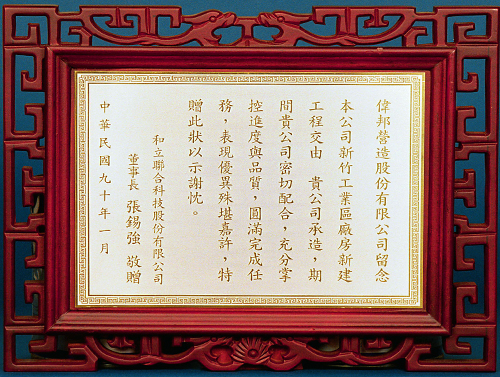 偉邦營造股份有限公司留念
本公司新竹工業區廠房新建
工程交由 貴公司承造，期
間貴公司密切配合，充分掌
控進度與品質，圓滿完成任
務，表現優異殊堪嘉許，特
贈此狀以示謝忱。
和立聯合科技股份有限公司
董事長 張錫強 敬贈
中華民國九十年一月